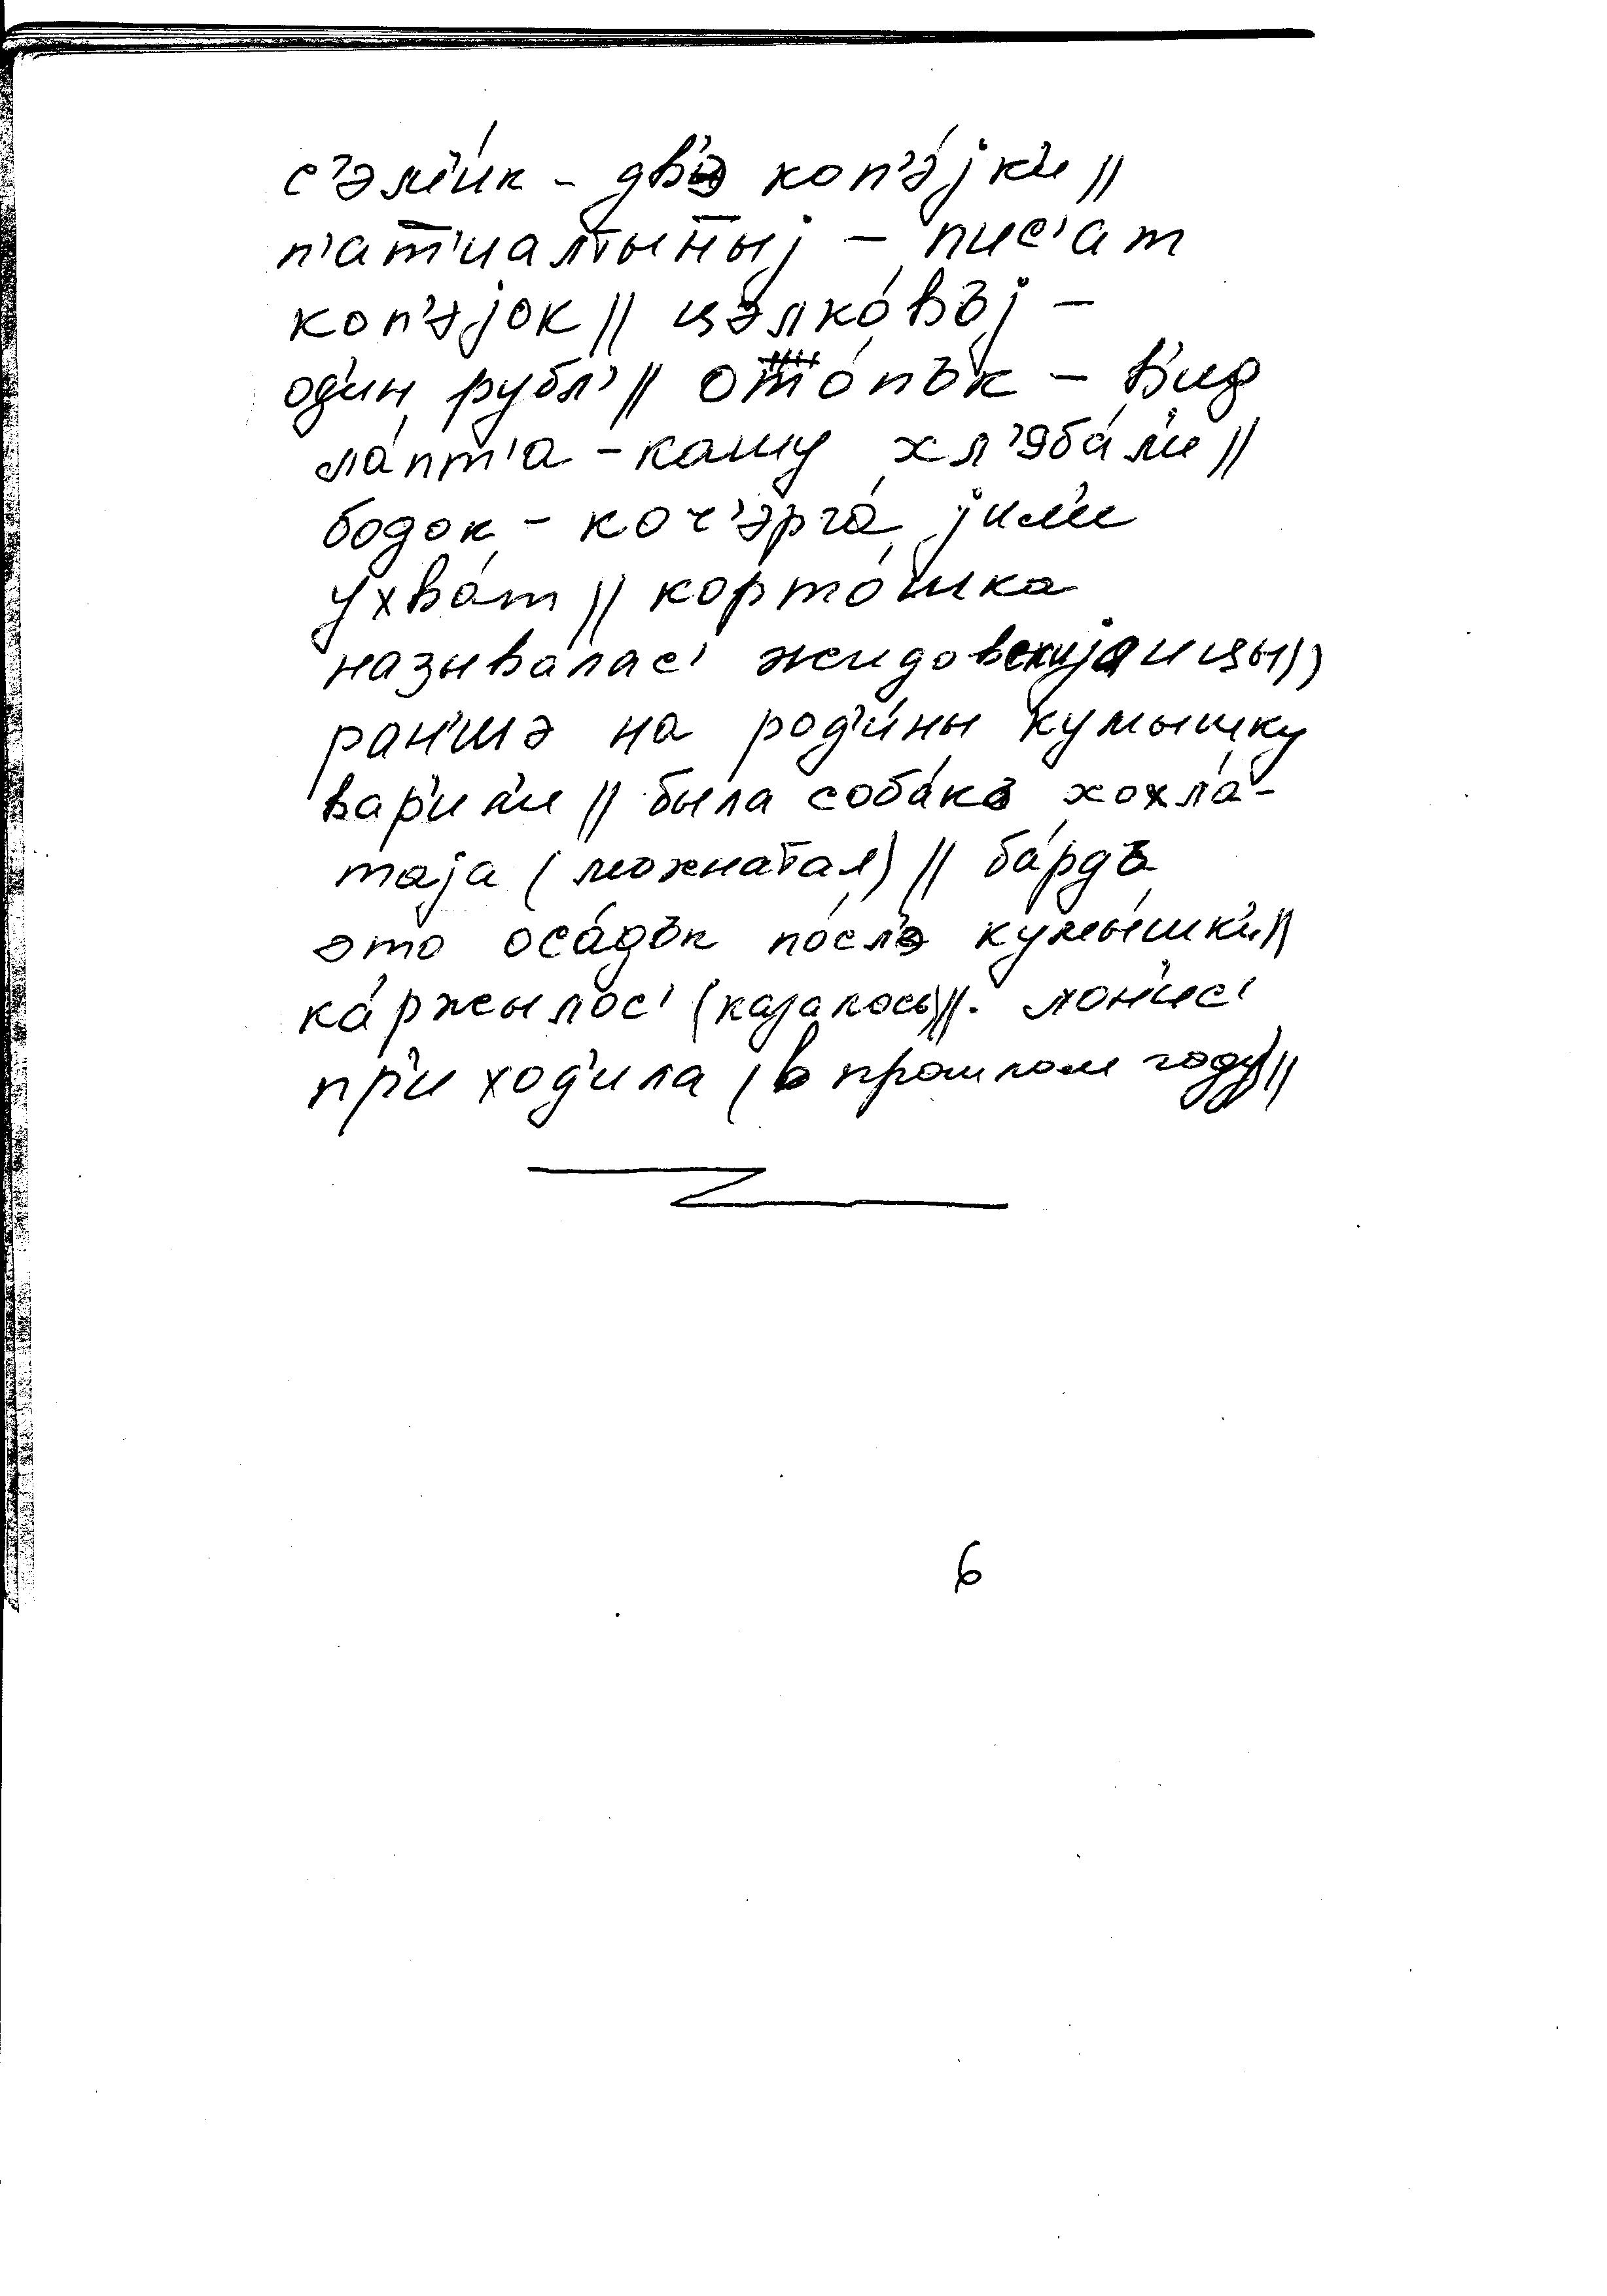 с'эм'и́к - дв'э коп'э́јк'и ||
п'ат'иалтыныј - пис'ат
коп'эјок || цэлко́въј -
од'ин рубл' || ото́пък - в'ид
ла́пт'а - кашу хл'яба́л'и ||
бодок - коч'эрга́ јил'и
ухва́т || корто́шка
называлас' жидовскијаицы ||
ран'шэ на род'и́ны кумышку
вар'ил'и || была соба́къ хохла́-
таја (мохнатая) || ба́рдъ
это оса́дък по́сл'э кумы́шк'и ||
ка́ржылос' (казалось) ||. лон'ис'
пр'иход'ила (в прошлом году) ||
6